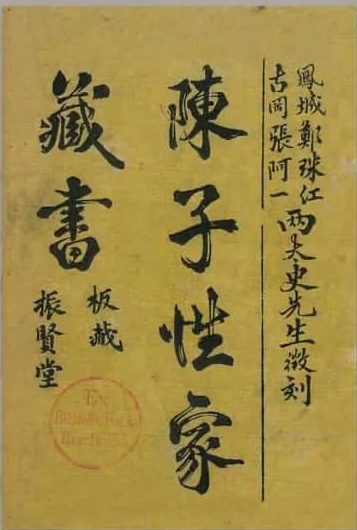 鳳城鄭珠江
古岡張阿一
兩太史先生徵刻
陳子性家
藏書
板藏
振賢堂